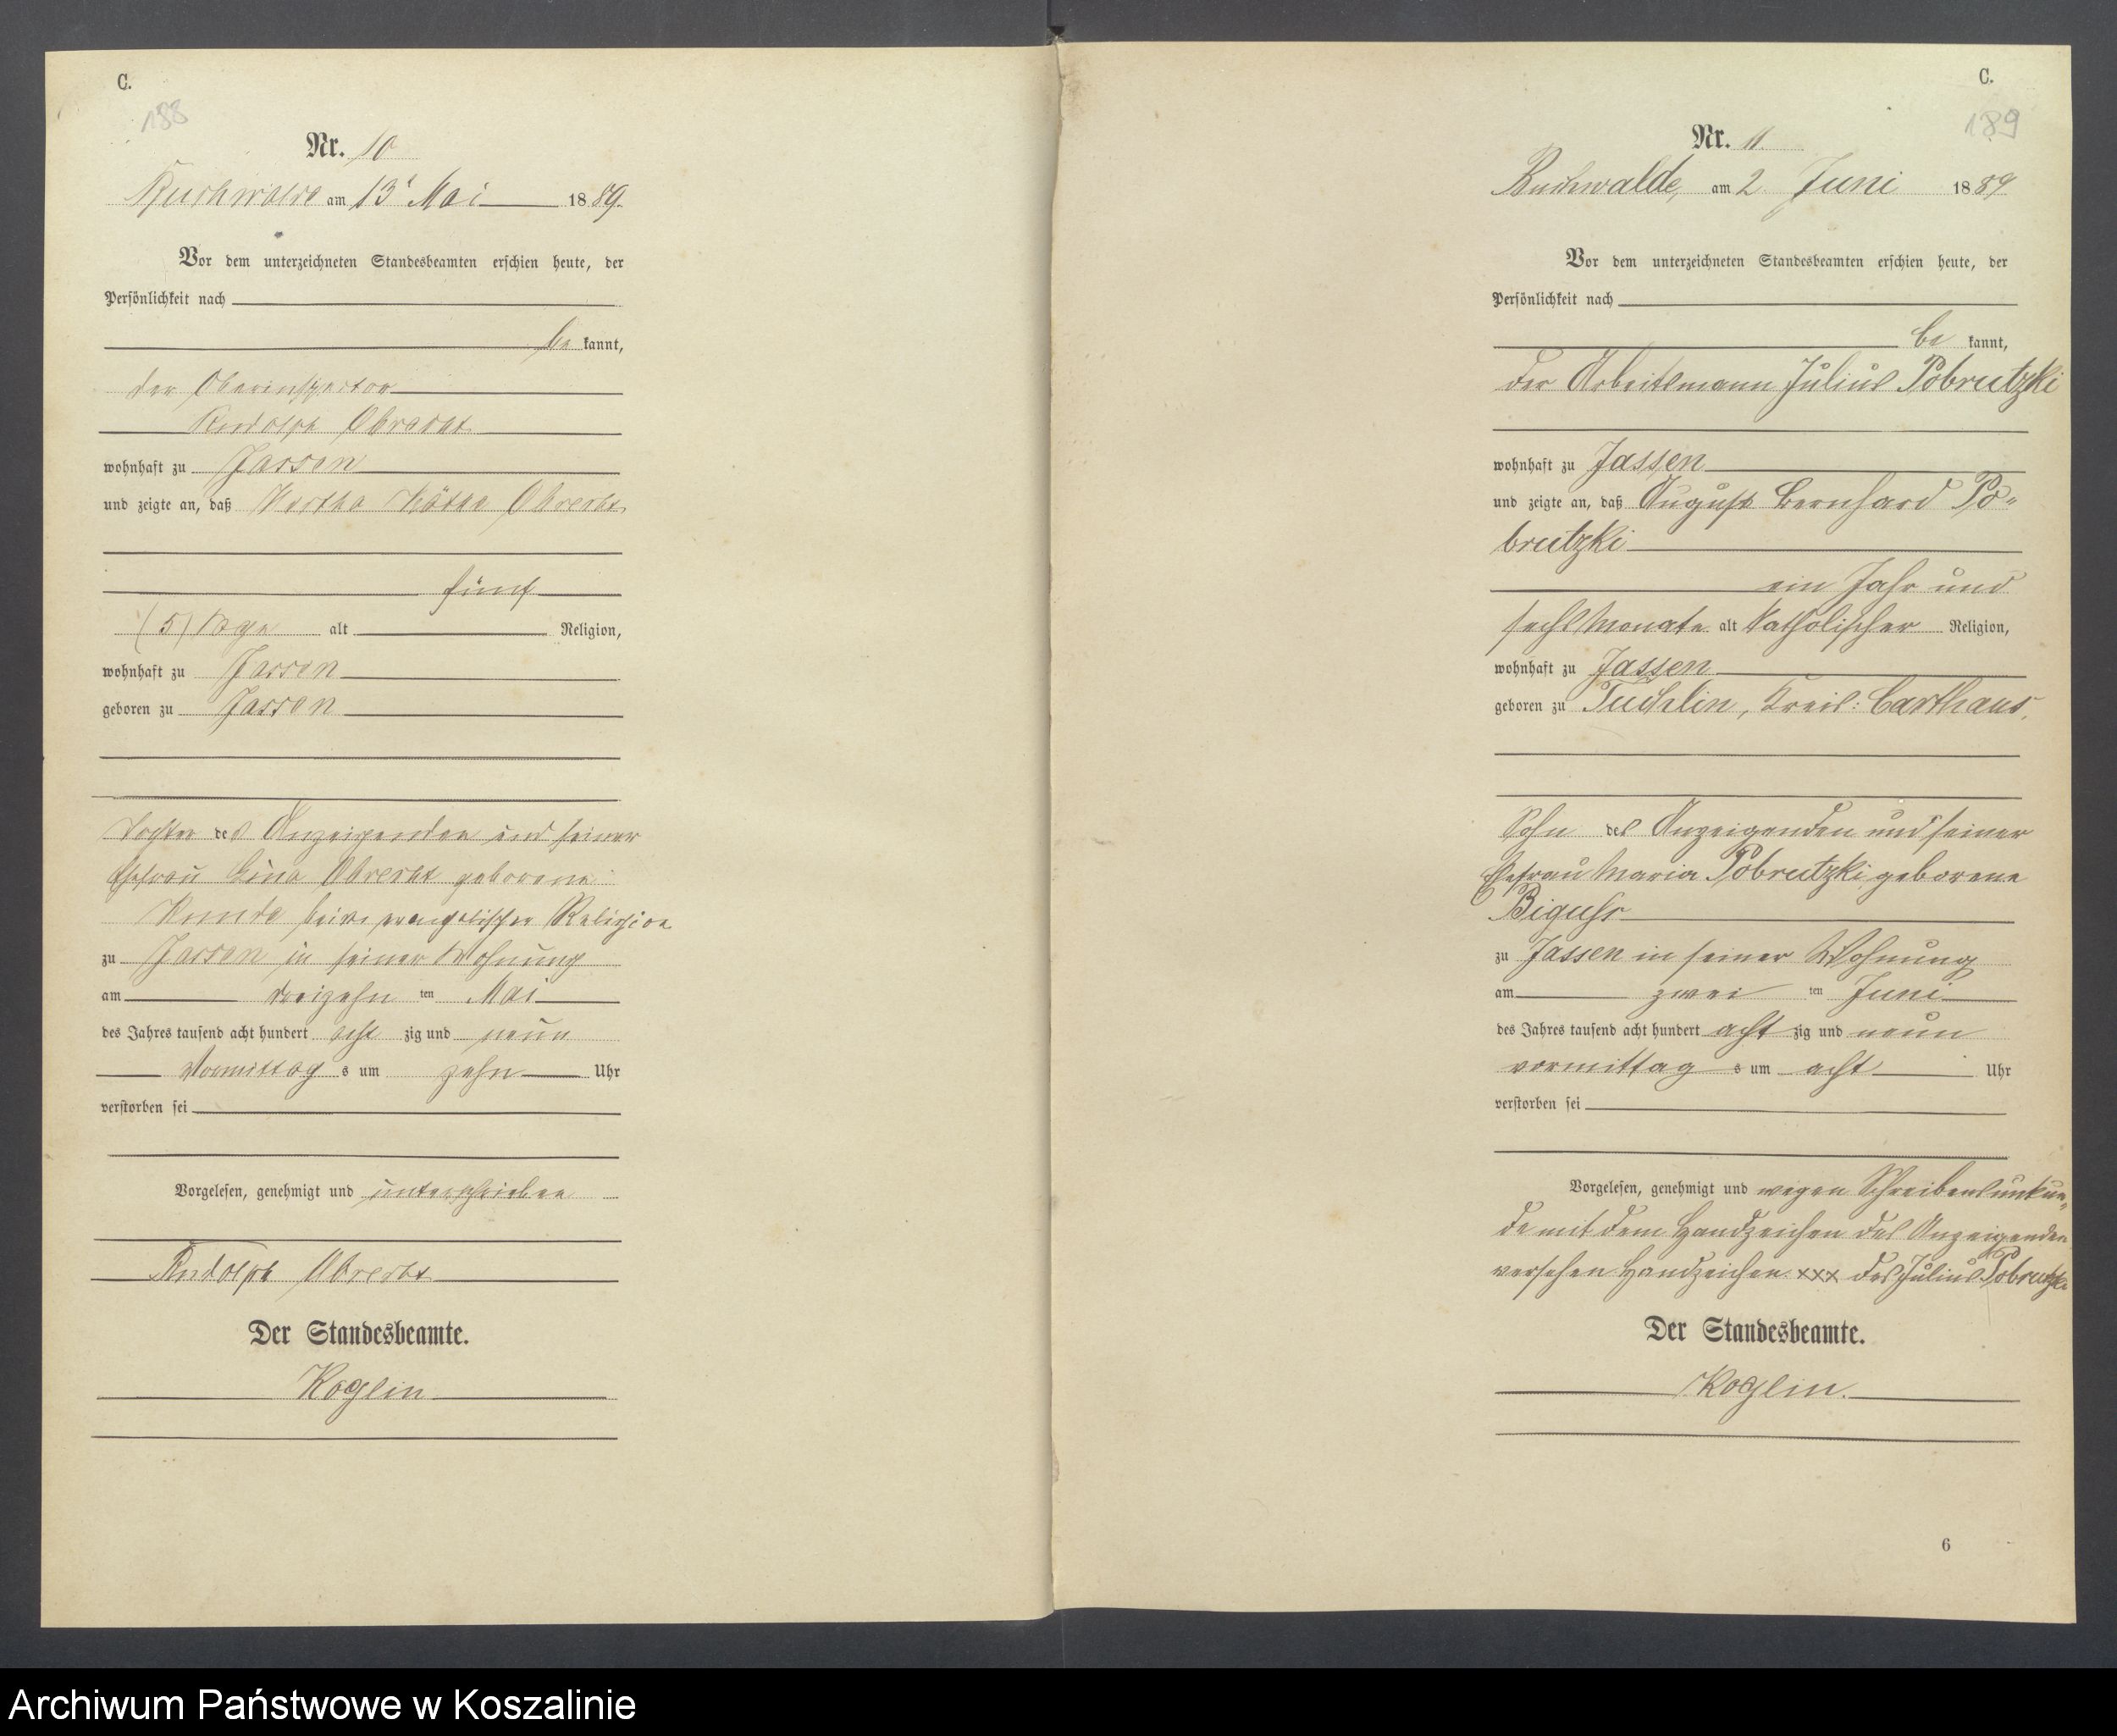 C.
188
Nr. 10
Buchwalde am 13t Mai 1889.
Vor dem unterzeichneten Standesbeamten erschien heute, der
Persönlichkeit nach
be kannt,
der Oberinspector
Rudolph Obrecht
wohnhaft zu Jassen
und zeigte an, daß Käthe Obrecht,
fünf
(5) Tage alt Religion,
wohnhaft zu Jassen
geboren zu Jassen
Tochter des Anzeigenden und seiner
Ehefrau Lina Obrecht geborene
beide evangelischer Religion
zu Jassen in seiner Wohnung
am dreizehn ten Mai
des Jahres tausend acht hundert acht zig und neun
Vormittag s um zehn Uhr
verstorben sei
Vorgelesen, genehmigt und unterschrieben
Rudolph Obrecht
Der Standesbeamte.
Koglin
C.
189
Nr. 11.
Buchwalde, am 2. Juni 1889
Vor dem unterzeichneten Standesbeamten erschien heute, der
Persönlichkeit nach
be kannt,
der Arbeitsmann Julius Pobrutzki
wohnhaft zu Jassen
und zeigte an, daß August Bernhard Po-
brutzki
ein Jahr und
sechs Monate alt katholischer Religion,
wohnhaft zu Jassen
geboren zu Tuchlin, Kreis: Carthaus,
Sohn des Anzeigenden und seiner
Ehefrau Maria Pobrutzki geborene
Biguhs
zu Jassen in seiner Wohnung
am zwei ten Juni
des Jahres tausend acht hundert acht zig und neun
vormittag s um acht Uhr
verstorben sei
Vorgelesen, genehmigt und wegen Schreibensunkun-
de mit dem Handzeichen des Anzeigenden
versehen Handzeichen xxx des Julius Pobrutzki
Der Standesbeamte.
Koglin.
6
Archiwum Państwowe w Koszalinie